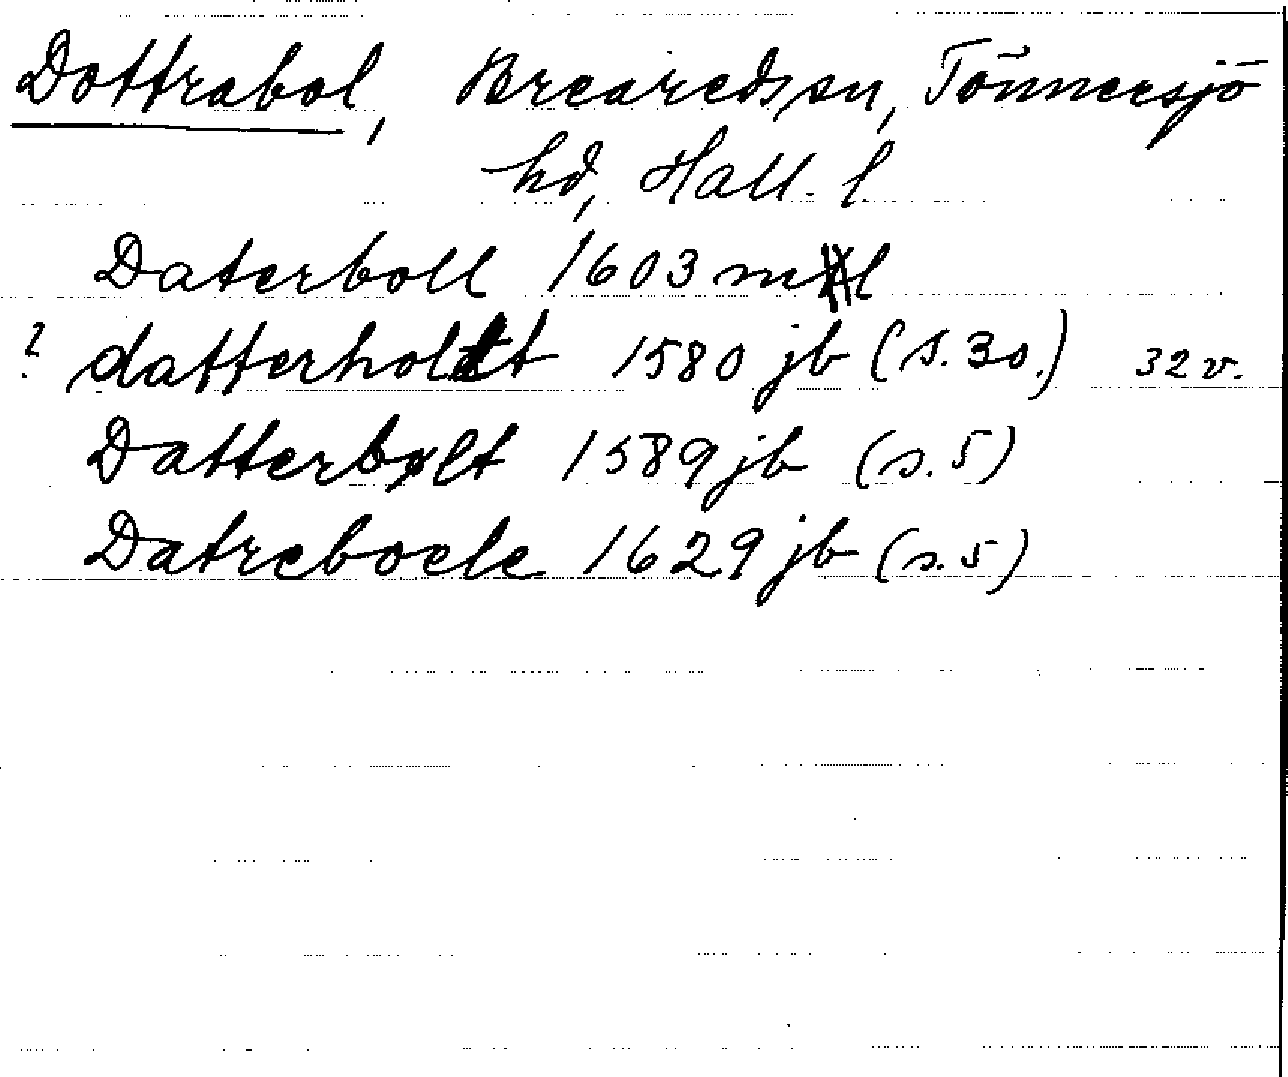 Dottrabol, Breareds sn, Tönnersjö
hd, Hall. l
Daterboll 1603 ml
? datterholt 1580 jb (s. 30.) 32 v.
Datterbølt 1589 jb (s. 5)
Datreboele 1629 jb (s. 5)